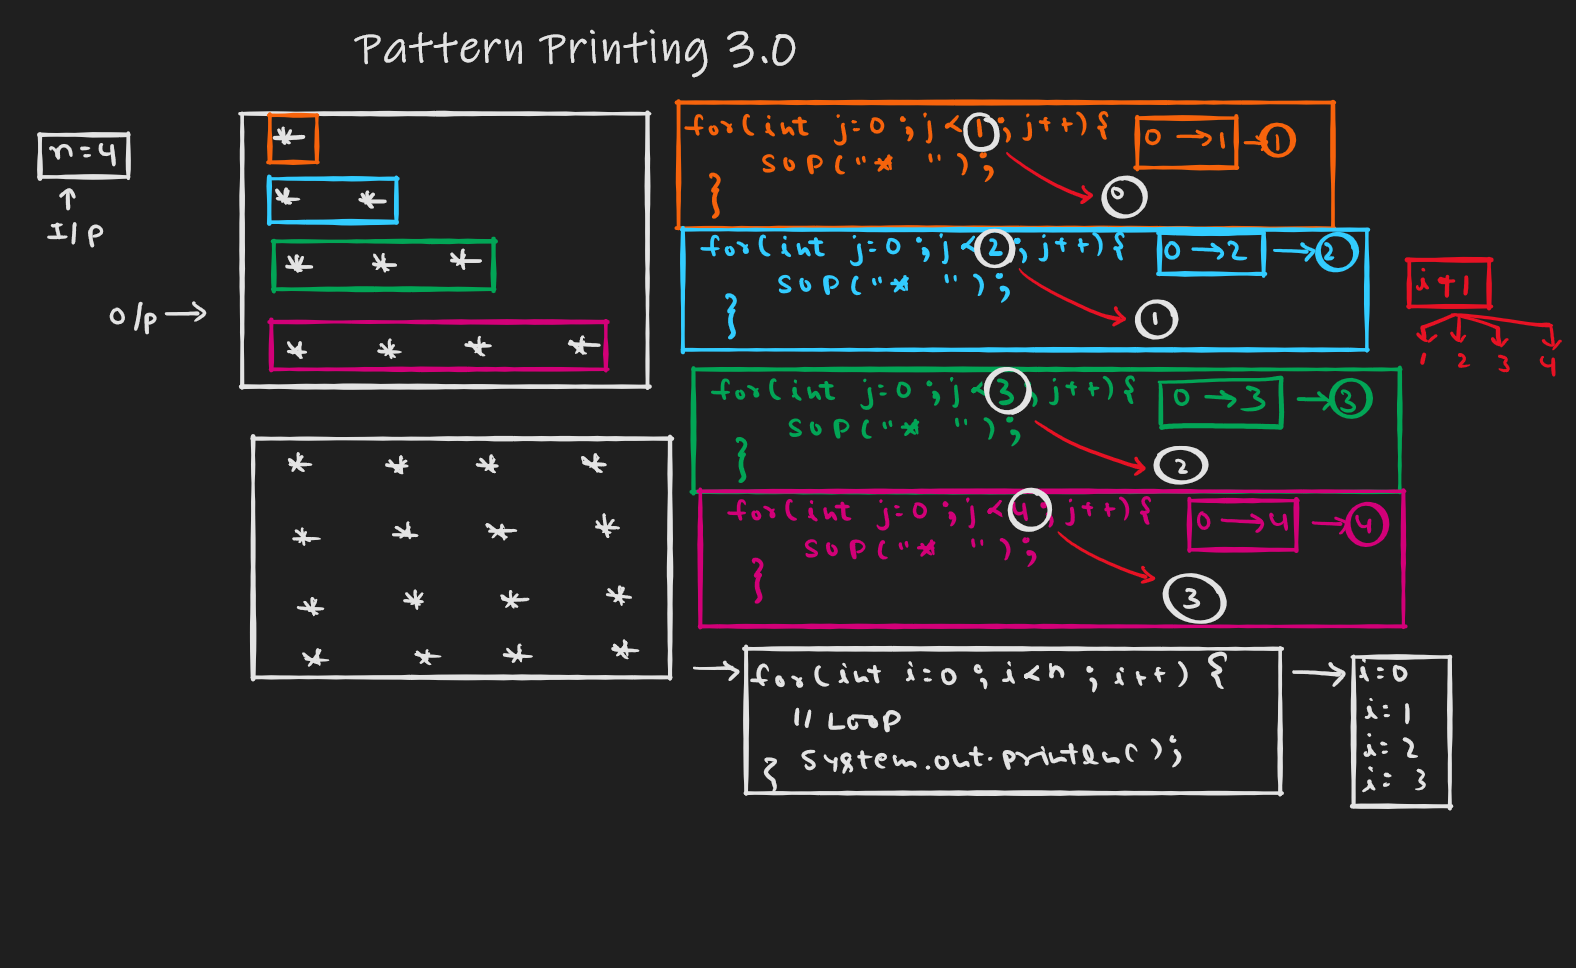 Pattern Printing 3.0
n=4
↑
I/p
O/p →
*
* *
* * *
* * * *
* * * *
* * * *
* * * *
* * * *
for(int j=0 ; j<1 ; j++){
SOP("* ");
}
0 → 1 → 1
0
for(int j=0 ; j<2 ; j++){
SOP("* ");
}
0 → 2 → 2
1
for(int j=0 ; j<3 ; j++){
SOP("* ");
}
0 → 3 → 3
2
for(int j=0 ; j<4 ; j++){
SOP("* ");
}
0 → 4 → 4
3
i+1
1 2 3 4
→ for(int i=0 ; i<n ; i++) {
// LOOP
System.out.println();
}
→ i=0
i=1
i=2
i=3